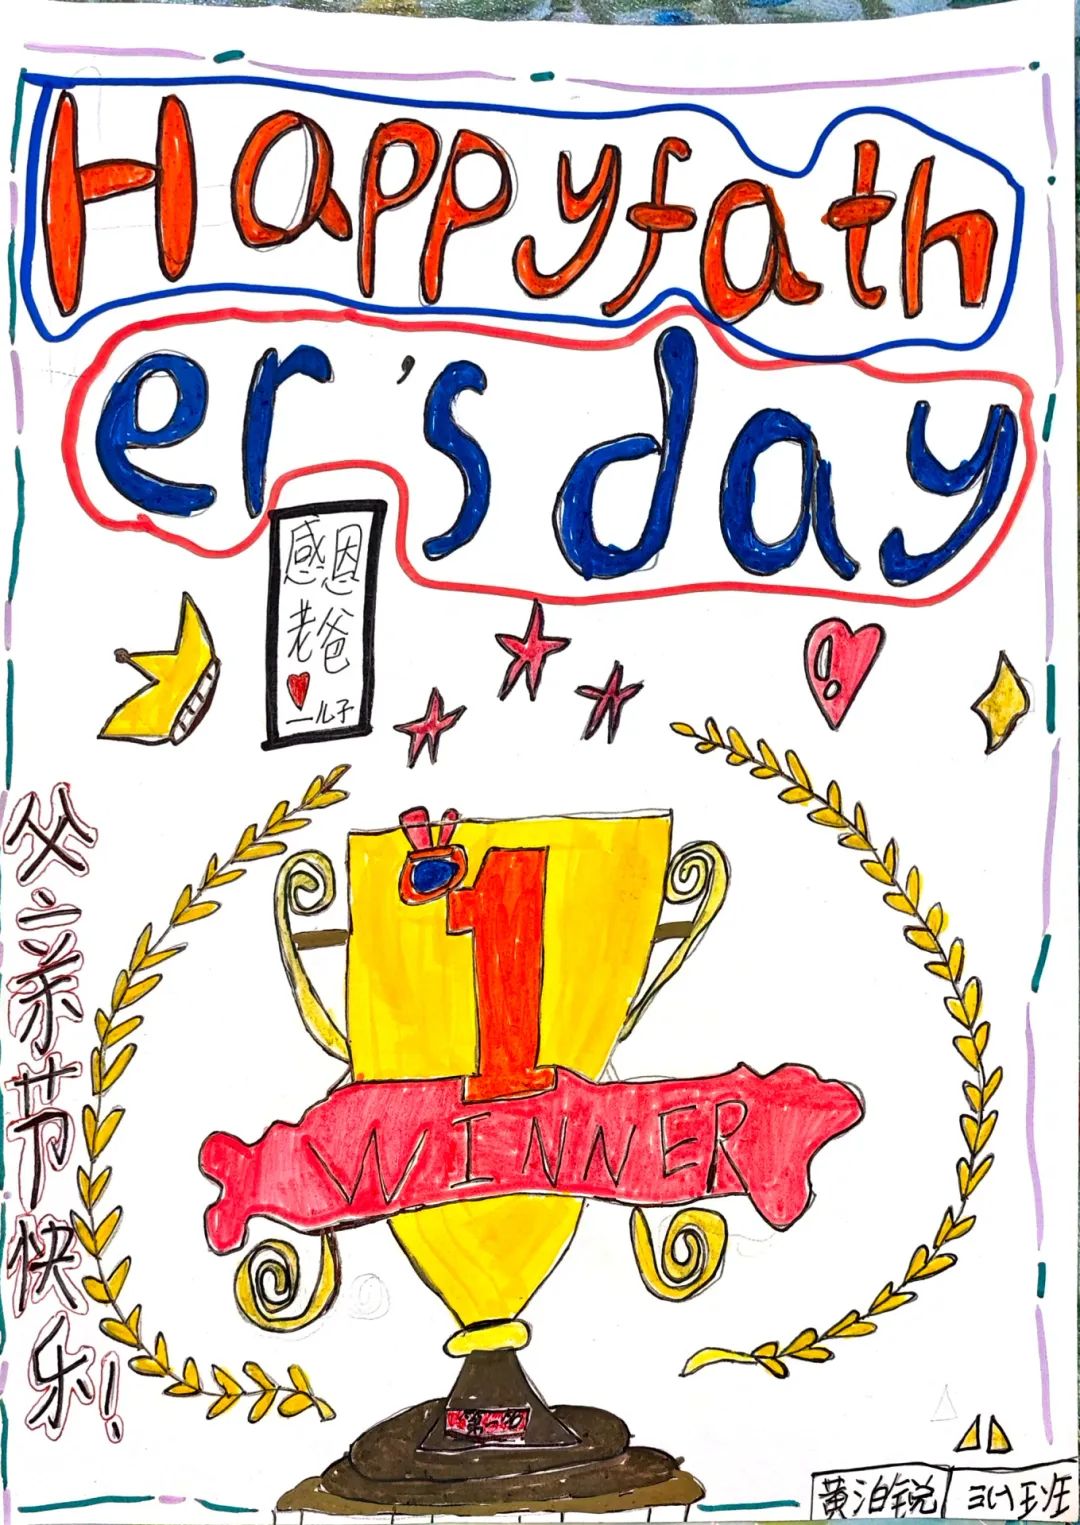 Happyfath
er's day
感恩
老爸
一儿子
父亲节快乐!
1
WINNER
黄泊锐